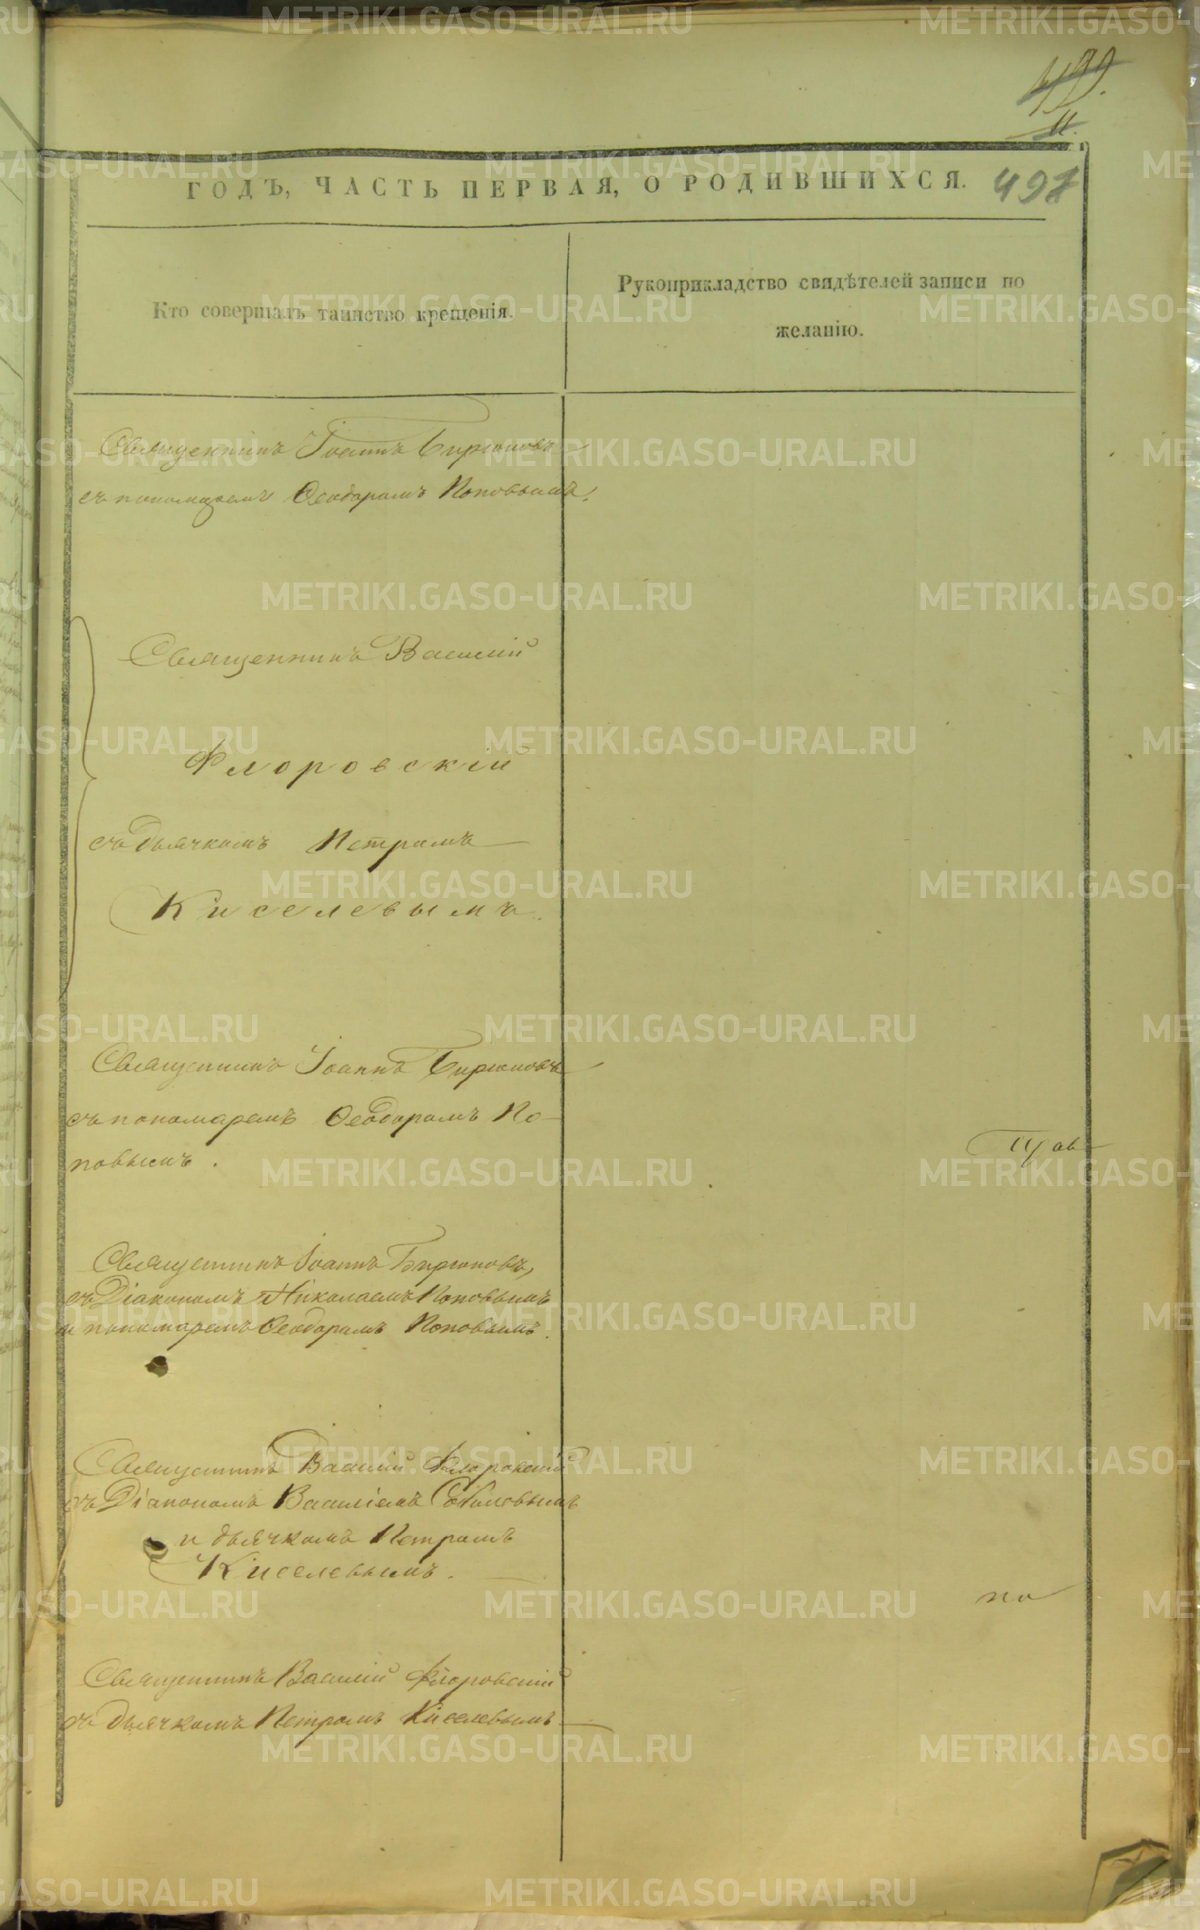 11.
ГОДЪ, ЧАСТЬ ПЕРВАЯ, О РОДИВШИХСЯ. 497
Кто совершалъ таинство крещенія.
Рукоприкладство свидѣтелей записи по
желанію.
Священникъ Іоаннъ Бирюковъ
съ пономаремъ Ѳеодоромъ Поповымъ.
Священникъ Василій
Флоровскій
съ дьячкомъ Петромъ
Киселевымъ.
Священникъ Іоаннъ Бирюковъ
съ пономаремъ Ѳеодоромъ По-
повымъ.
Священникъ Іоаннъ Бирюковъ,
съ Діакономъ Николаемъ Поповымъ
и пономаремъ Ѳеодоромъ Поповымъ.
Священникъ Василій Флоровскій
съ Діакономъ Василіемъ
и дьячкомъ Петромъ
Киселевымъ.
по
Священникъ Василій Флоровскій
съ дьячкомъ Петромъ Киселевымъ
METRIKI.GASO-URAL.RU